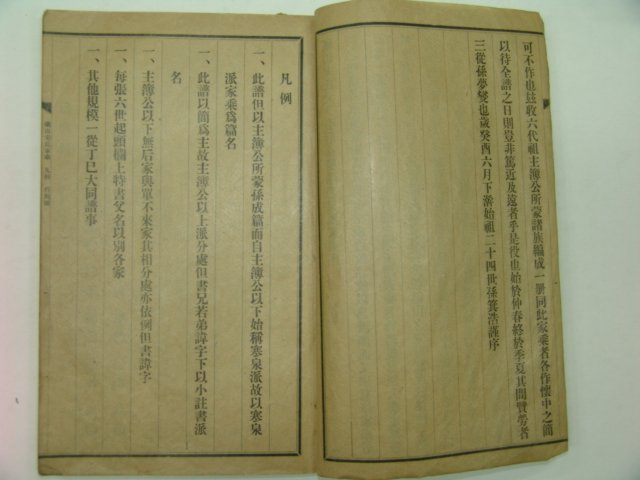 可不作也玆收六代祖主簿公所蒙諸族編成一册同此家乘者各作懷中之簡
以待全譜之日則豈非篤近及遠者乎是役也始於仲春終於季夏其間賢勞者
三從孫夢燮也歲癸酉六月下澣始祖二十四世孫箕浩謹序
凡例
一、此譜但以主簿公所蒙孫成篇而自主簿公以下始稱寒泉派故以寒泉
派家乘爲篇名
一、此譜以簡爲主故主簿公以上派分處但書兄若弟諱字下以小註書派
名
一、主簿公以下無后家與單不來家其相分處亦依例但書諱字
一、每張六世起頭欄上特書父名以別各家
一、其他規模一從丁巳大同譜事